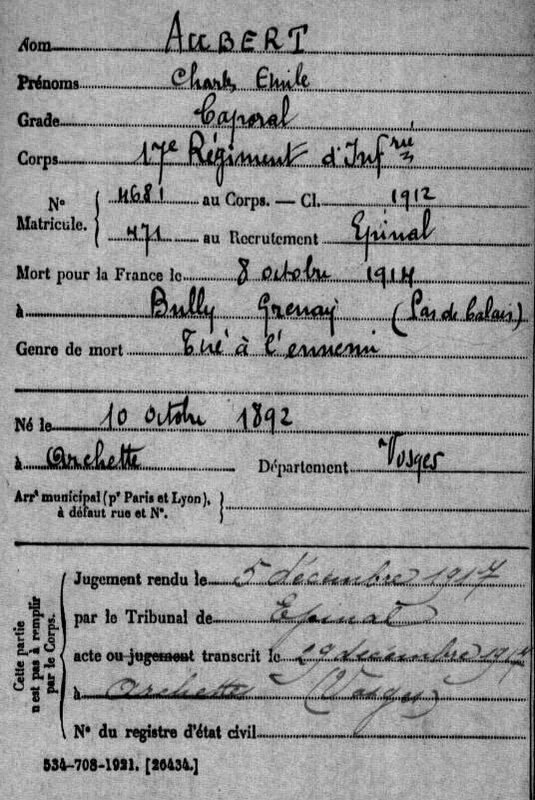 Nom AUBERT
Prénoms Charles Emile
Grade Caporal
Corps 17e Régiment d'Infrie
N° Matricule. 4681 au Corps. — Cl. 1912
471 au Recrutement Epinal
Mort pour la France le 8 octobre 1914
à Bully Grenay (Pas de Calais)
Genre de mort Tué à l'ennemi
Né le 10 octobre 1892
à Archette Département Vosges
Arrt municipal (pr Paris et Lyon),
à défaut rue et N°.
Cette partie
n'est pas à remplir
par le Corps.
Jugement rendu le 5 décembre 1917
par le Tribunal de Epinal
acte ou jugement transcrit le 29 décembre 1917
à Archette (Vosges)
N° du registre d'état civil
534-708-1921. [26434.]